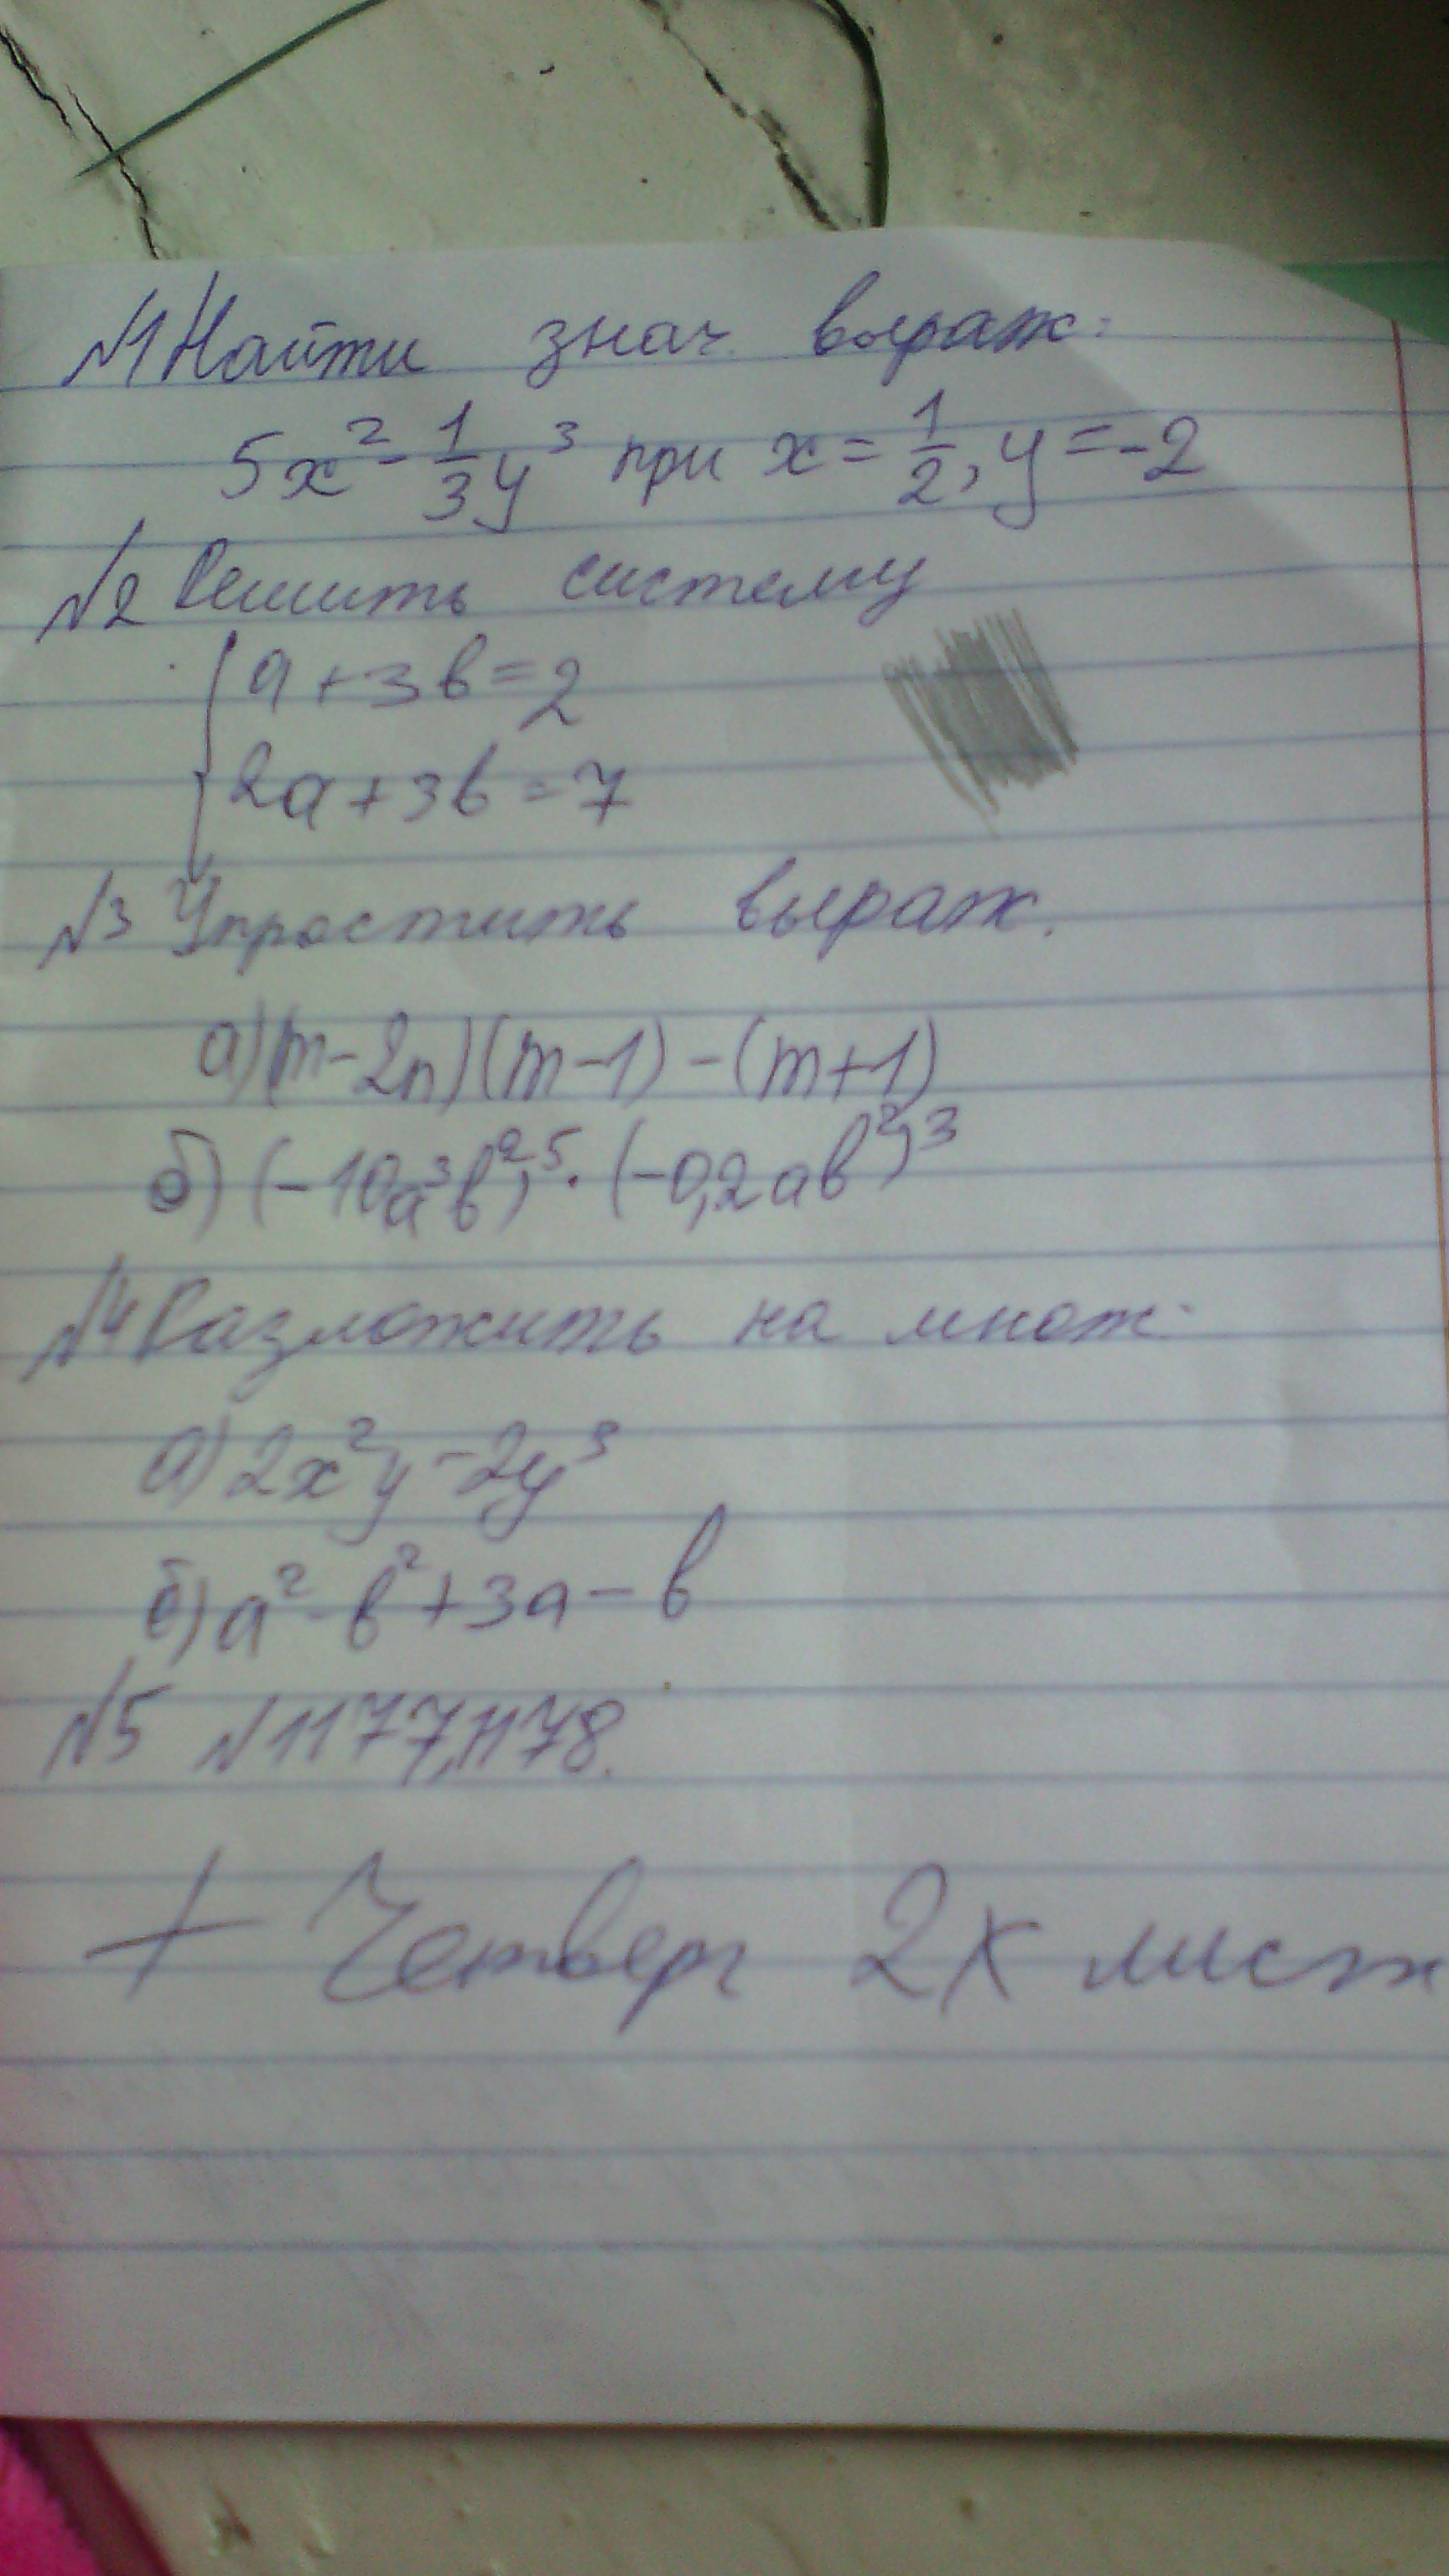 №1 Найти знач. выраж:
5x² - 1/3y³ при x = 1/2, y = -2
№2 Решить систему
a + 3b = 2
2a + 3b = 7
№3 Упростить выраж.
а) (m - 2n)(m - 1) - (m + 1)
б) (-10a³b²)⁵ · (-0,2ab²)³
№4 Разложить на множ.
а) 2x²y - 2y³
б) a² - b² + 3a - b
№5 №1177, 1178.
+ Четверг 2х лист